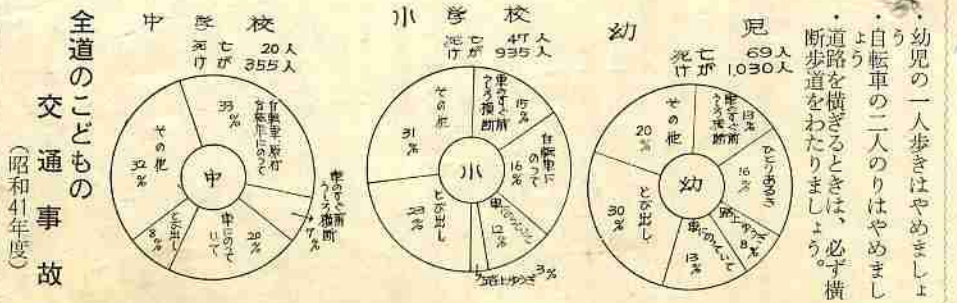 ・幼児の一人歩きはやめましょ
う
・自転車の二人のりはやめまし
ょう
・道路を横ぎるときは、必ず横
断歩道をわたりましょう。
幼児
死亡 69人
けが 1,030人
幼
車のすぐ前
うしろ横断
13%
ひとりあるき
16%
路上ゆうぎ
8%
車にのっていて
13%
とび出し
30%
その他
20%
小学校
死亡 47人
けが 935人
小
車のすぐ前
うしろ横断
15%
自転車に
のって
16%
車にのっていて
路上ゆうぎ 3%
とび出し
その他
31%
中学校
死亡 20人
けが 355人
中
自転車にのって
33%
車のすぐ前
うしろ横断
7%
車にのって
いて
20%
とび出し
8%
その他
32%
全道のこどもの
交通事故
(昭和41年度)